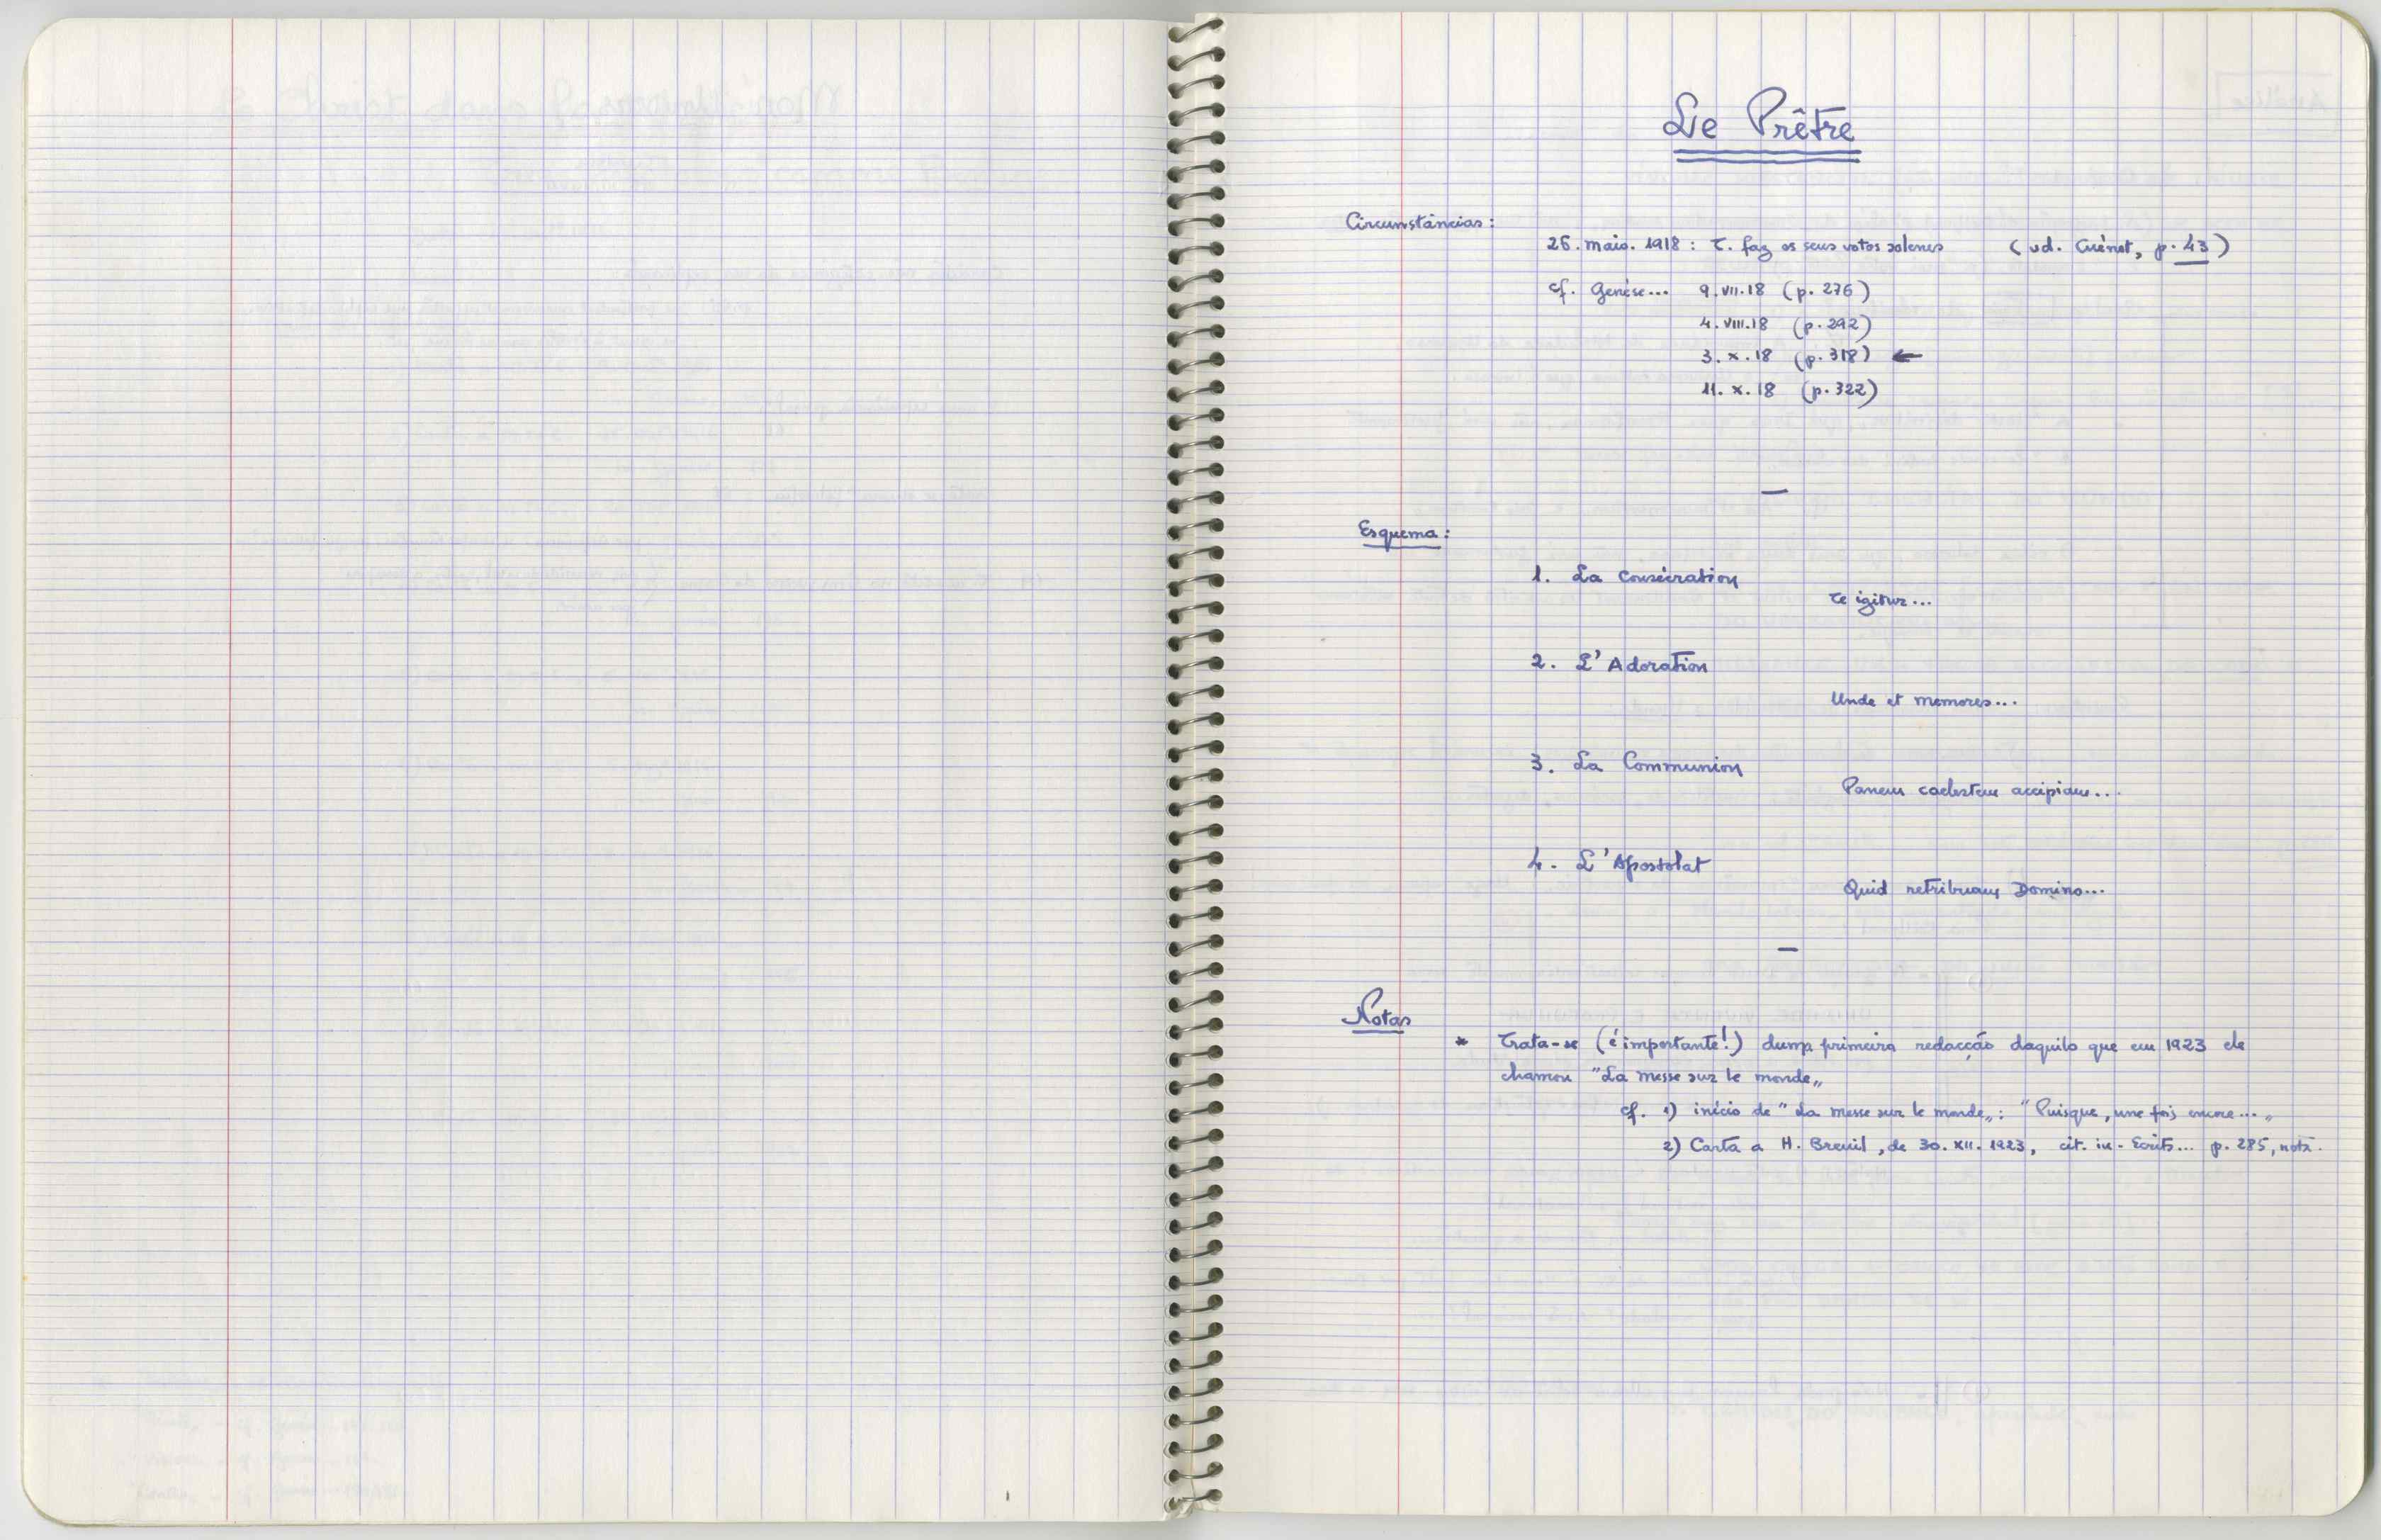 Le Prêtre
Circunstâncias:
26. maio. 1918: T. faz os seus votos solenes (vd. Cuénot, p. 43)
cf. Genèse... 9.VII.18 (p. 276)
4.VIII.18 (p. 292)
3.X.18 (p. 318) ←
11.X.18 (p. 322)
—
Esquema:
1. La Consécration
Te igitur...
2. L'Adoration
Unde et memores...
3. La Communion
Panem caelestem accipiam...
4. L'Apostolat
Quid retribuam Domino...
—
Notas
* Trata-se (é importante!) duma primeira redacção daquilo que em 1923 ele
chamou "La messe sur le monde„
cf. 1) início de "La messe sur le monde„: "Puisque, une fois encore...„
2) Carta a H. Breuil, de 30.XII.1923, cit. in- Écrits... p. 285, nota.